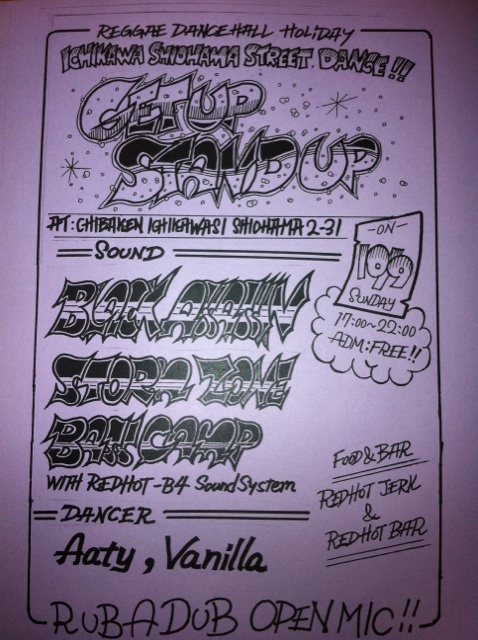 REGGAE DANCEHALL HOLIDAY
ICHIKAWA SHIOHAMA STREET DANCE!!
GET UP
STAND UP
AT: CHIBAKEN ICHIKAWASI SHIOHAMA 2-31
-ON-
10/9
SUNDAY
17:00~22:00
ADM:FREE!!
SOUND
BLACK ASSASSIN
STORM ZONE
BASS CAMP
WITH REDHOT-B4 SoundSystem
FOOD & BAR
REDHOT JERK
&
REDHOT BAR
DANCER
Aaty, Vanilla
RUB A DUB OPEN MIC!!